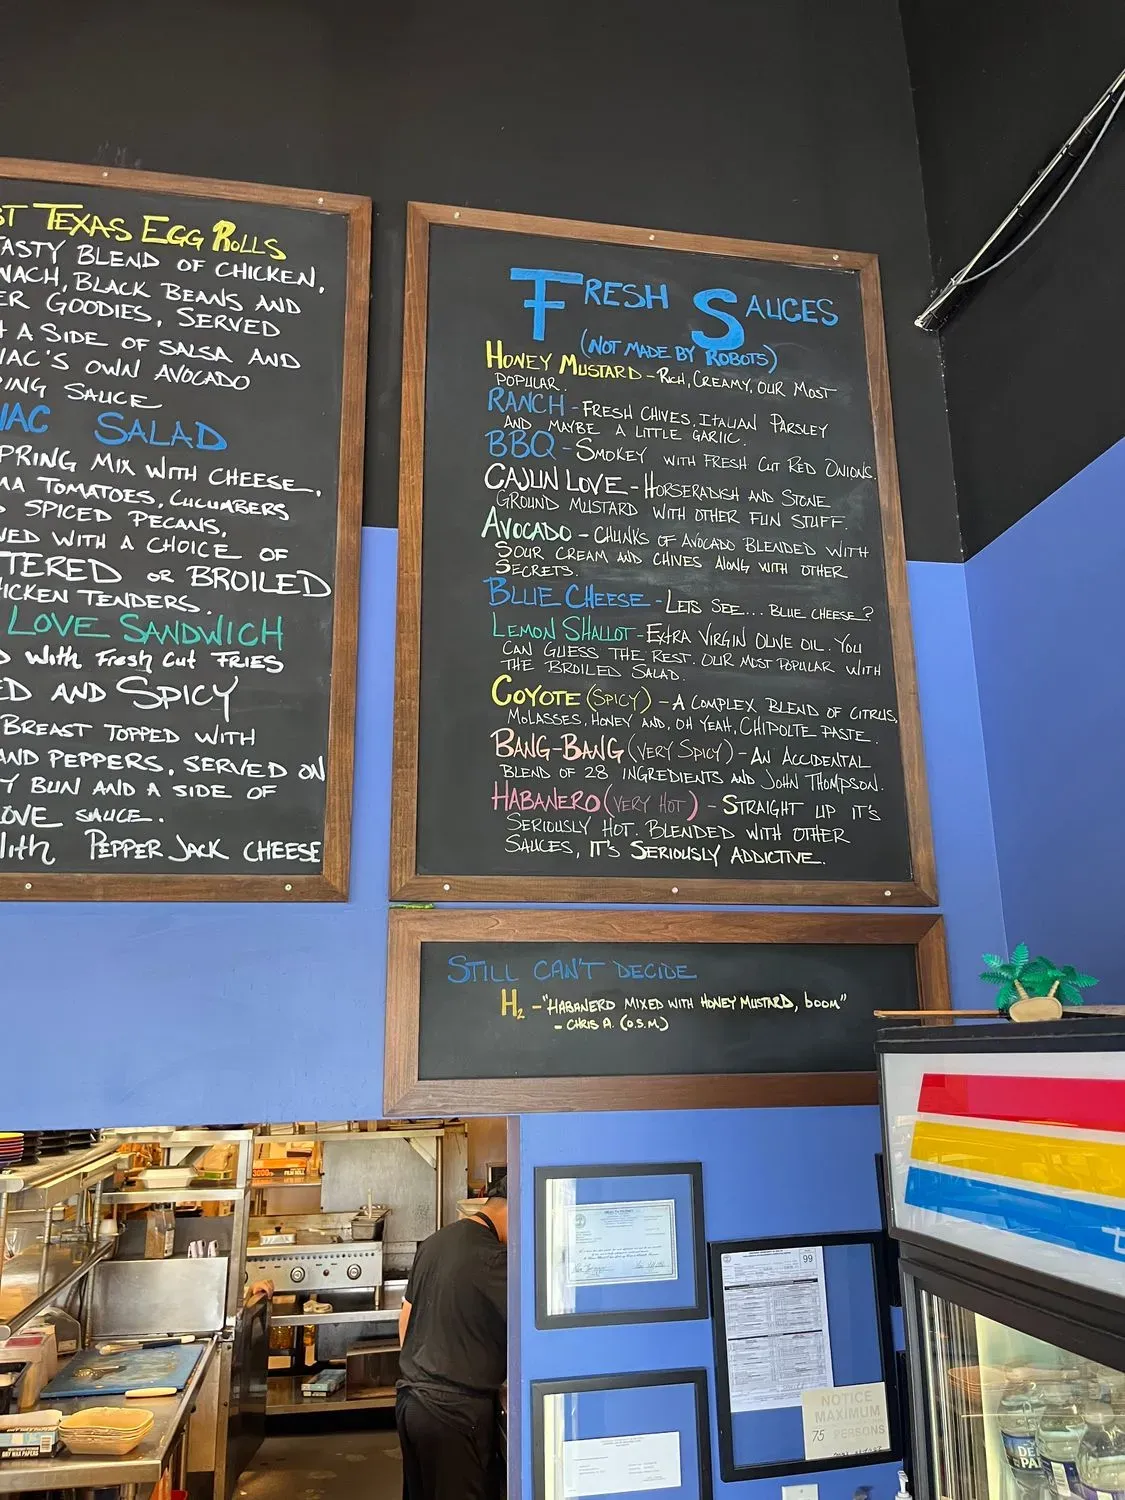 ST TEXAS EGG ROLLS
TASTY BLEND OF CHICKEN,
NACH, BLACK BEANS AND
ER GOODIES, SERVED
H A SIDE OF SALSA AND
IAC'S OWN AVOCADO
PING SAUCE
IAC SALAD
PRING MIX WITH CHEESE,
MA TOMATOES, CUCUMBERS
SPICED PECANS,
VED WITH A CHOICE OF
TERED OR BROILED
HICKEN TENDERS.
LOVE SANDWICH
D WITH FRESH CUT FRIES
ED AND SPICY
BREAST TOPPED WITH
AND PEPPERS, SERVED ON
Y BUN AND A SIDE OF
LOVE SAUCE.
With PEPPER JACK CHEESE
FRESH SAUCES
(NOT MADE BY ROBOTS)
HONEY MUSTARD - RICH, CREAMY, OUR MOST
POPULAR.
RANCH - FRESH CHIVES, ITALIAN PARSLEY
AND MAYBE A LITTLE GARLIC.
BBQ - SMOKEY WITH FRESH CUT RED ONIONS.
CAJUN LOVE - HORSERADISH AND STONE
GROUND MUSTARD WITH OTHER FUN STUFF.
AVOCADO - CHUNKS OF AVOCADO BLENDED WITH
SOUR CREAM AND CHIVES ALONG WITH OTHER
SECRETS.
BLUE CHEESE - LETS SEE... BLUE CHEESE?
LEMON SHALLOT - EXTRA VIRGIN OLIVE OIL. YOU
CAN GUESS THE REST. OUR MOST POPULAR WITH
THE BROILED SALAD.
COYOTE (SPICY) - A COMPLEX BLEND OF CITRUS,
MOLASSES, HONEY AND, OH YEAH, CHIPOLTE PASTE.
BANG-BANG (VERY SPICY) - AN ACCIDENTAL
BLEND OF 28 INGREDIENTS AND JOHN THOMPSON.
HABANERO (VERY HOT) - STRAIGHT UP IT'S
SERIOUSLY HOT. BLENDED WITH OTHER
SAUCES, IT'S SERIOUSLY ADDICTIVE.
STILL CAN'T DECIDE
H2 - "HABANERO MIXED WITH HONEY MUSTARD, boom"
- CHRIS A. (O.S.M.)
99
NOTICE
MAXIMUM
75 PERSONS